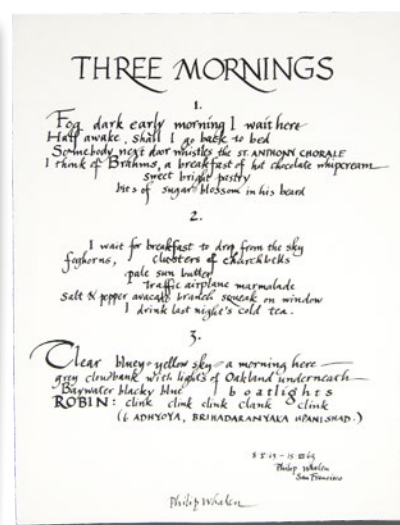 THREE MORNINGS
1.
Fog dark early morning I wait here
Half awake, shall I go back to bed
Somebody next door whistles the ST. ANTHONY CHORALE
I think of Brahms, a breakfast of hot chocolate whipcream
sweet bright pastry
bits of sugar blossom in his beard
2.
I wait for breakfast to drop from the sky
foghorns, clusters of churchbells
pale sun butter
traffic airplane marmalade
salt & pepper avacado branch squeak on window
I drink last night's cold tea.
3.
Clear bluey-yellow sky - a morning here
grey cloudbank with lights of Oakland underneath
Baywater blacky blue boatlights
ROBIN: clink clink clink clank clink
(6 ADHYOYA, BRIHADARANYAKA UPANISHAD.)
Philip Whalen
San Francisco
Philip Whalen